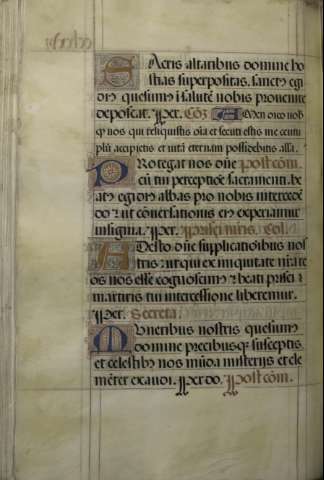 Sacris altaribus domine ho
stias superpositas. sanctus egi
dius quesumus i salutē nobis prouenire
deposcat. Per. Cōō Amen dico vobis
qp nos qui reliquistis oīa et secuti estis me centu
plū accipietis et uitā eternam possidebitis alla.
Protegat nos dn̄e Postcōm.
cū tui perceptiōe sacramenti be
atus egidius abbas pro nobis intercedē
do ut conuersationis eius experiamur
insignia. Per. Prisci mris. Col.
Adesto dn̄e supplicatiōibus nos
tris: ut qui ex iniquitate nr̄a re
os nos esse cognoscimus beati prisci
martiris tui intercessione liberemur.
Per. Secreta.
Muneribus nostris quesumus
domine precibusq susceptis
et celestibus nos mūda misterijs et cle
mēter exaudi. Per do. Postcōm.